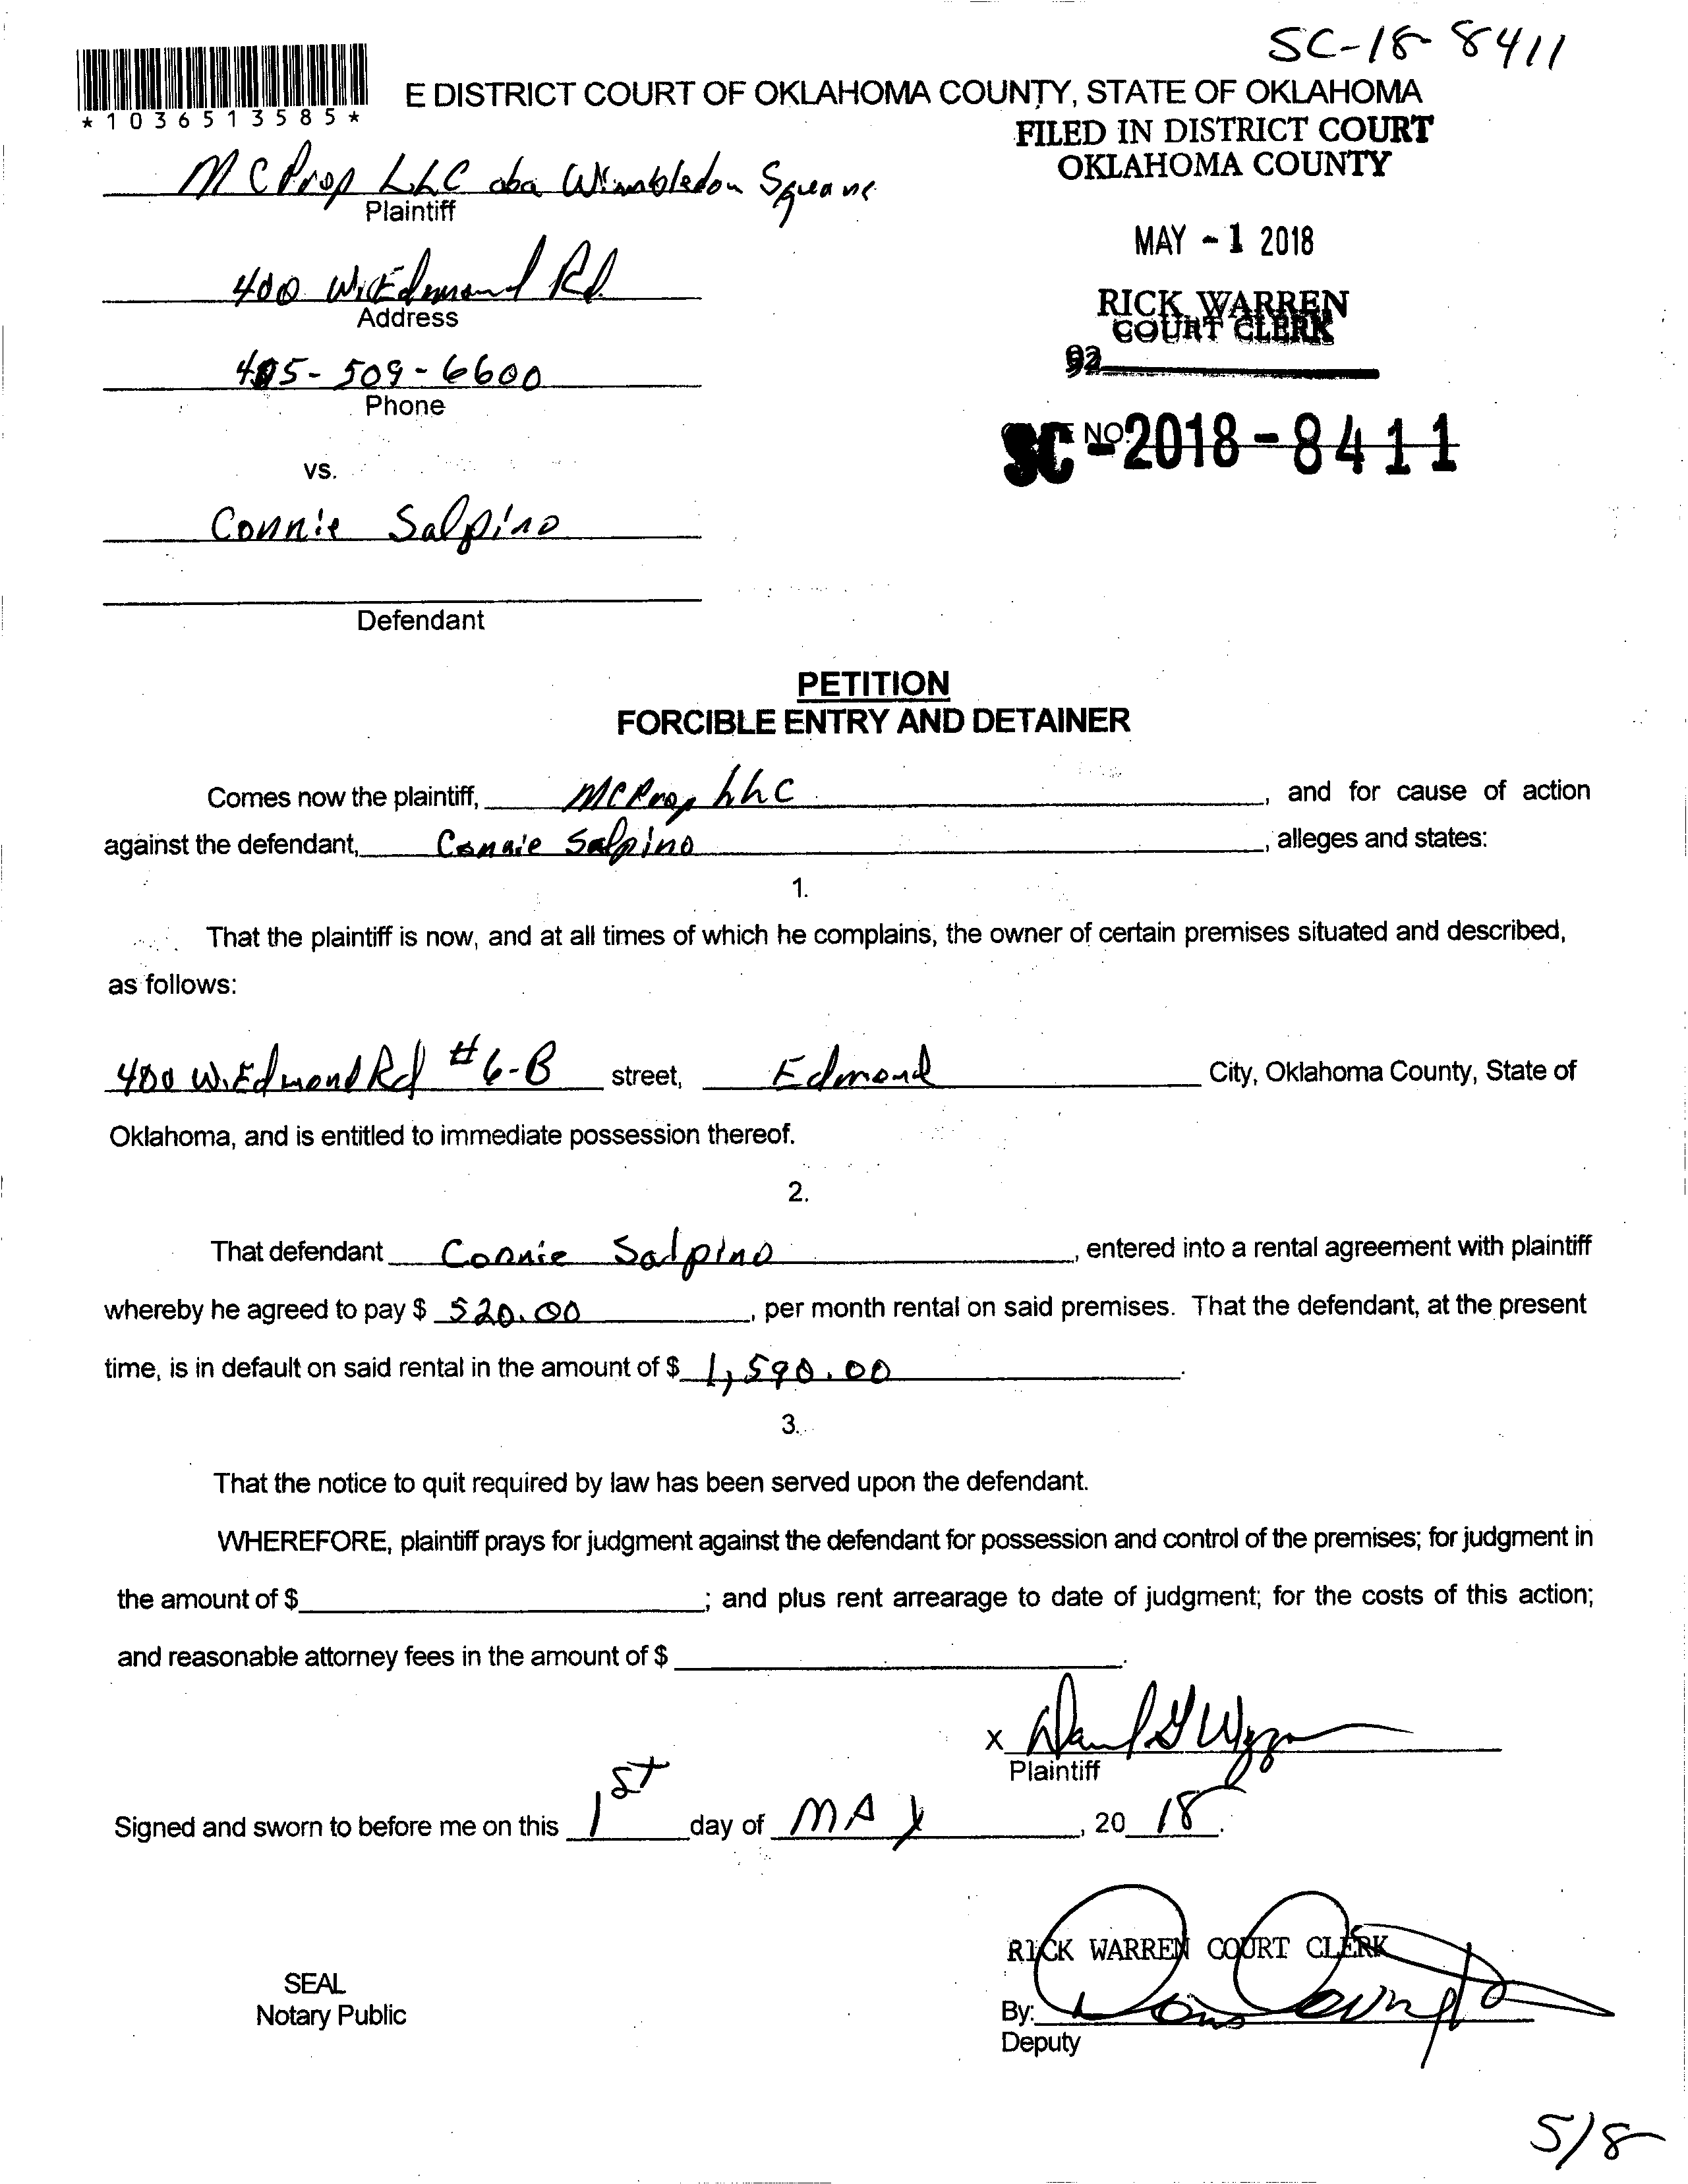 SC-18-8411
E DISTRICT COURT OF OKLAHOMA COUNTY, STATE OF OKLAHOMA
*1036513585*
FILED IN DISTRICT COURT
OKLAHOMA COUNTY
MC Prop LLC dba Wimbledon Square
Plaintiff
MAY - 1 2018
400 W. Edmond Rd.
Address
RICK WARREN
COURT CLERK
92
405-509-6600
Phone
SC - NO. 2018-8411
vs.
Connie Salpino
Defendant
PETITION
FORCIBLE ENTRY AND DETAINER
Comes now the plaintiff, MC Prop LLC, and for cause of action
against the defendant, Connie Salpino, alleges and states:
1.
That the plaintiff is now, and at all times of which he complains, the owner of certain premises situated and described,
as follows:
400 W. Edmond Rd #6-B street, Edmond City, Oklahoma County, State of
Oklahoma, and is entitled to immediate possession thereof.
2.
That defendant Connie Salpino, entered into a rental agreement with plaintiff
whereby he agreed to pay $ 520.00, per month rental on said premises. That the defendant, at the present
time, is in default on said rental in the amount of $ 1,590.00.
3.
That the notice to quit required by law has been served upon the defendant.
WHEREFORE, plaintiff prays for judgment against the defendant for possession and control of the premises; for judgment in
the amount of $ ; and plus rent arrearage to date of judgment; for the costs of this action;
and reasonable attorney fees in the amount of $ .
x
Plaintiff
Signed and sworn to before me on this 1st day of MAY, 20 18.
RICK WARREN COURT CLERK
SEAL
Notary Public
By:
Deputy
5/8